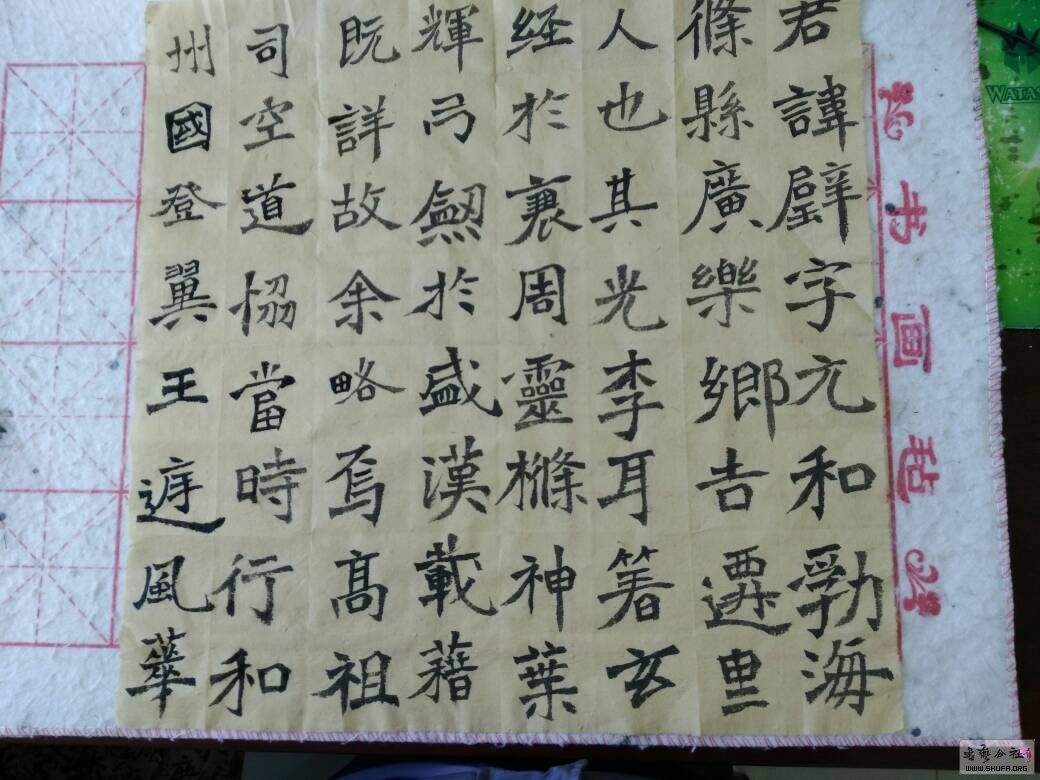 君諱璧字元和勃海
條縣廣樂鄉吉遷里
人也其光李耳箸玄
經於衰周靈樤神葉
輝弓劒於盛漢載藉
既詳故余略焉高祖
司空道協當時行和
州國登翼王庭風華
书画毡
WATAS
WWW.SHUFA.ORG